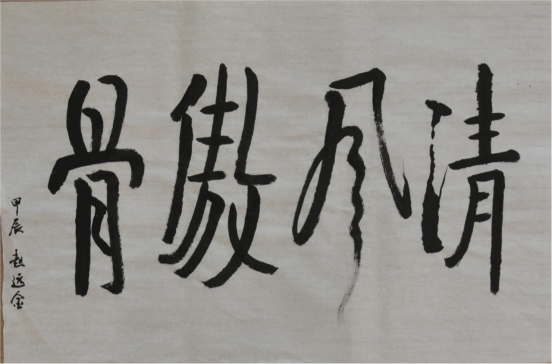 清风傲骨
甲辰 赵远金